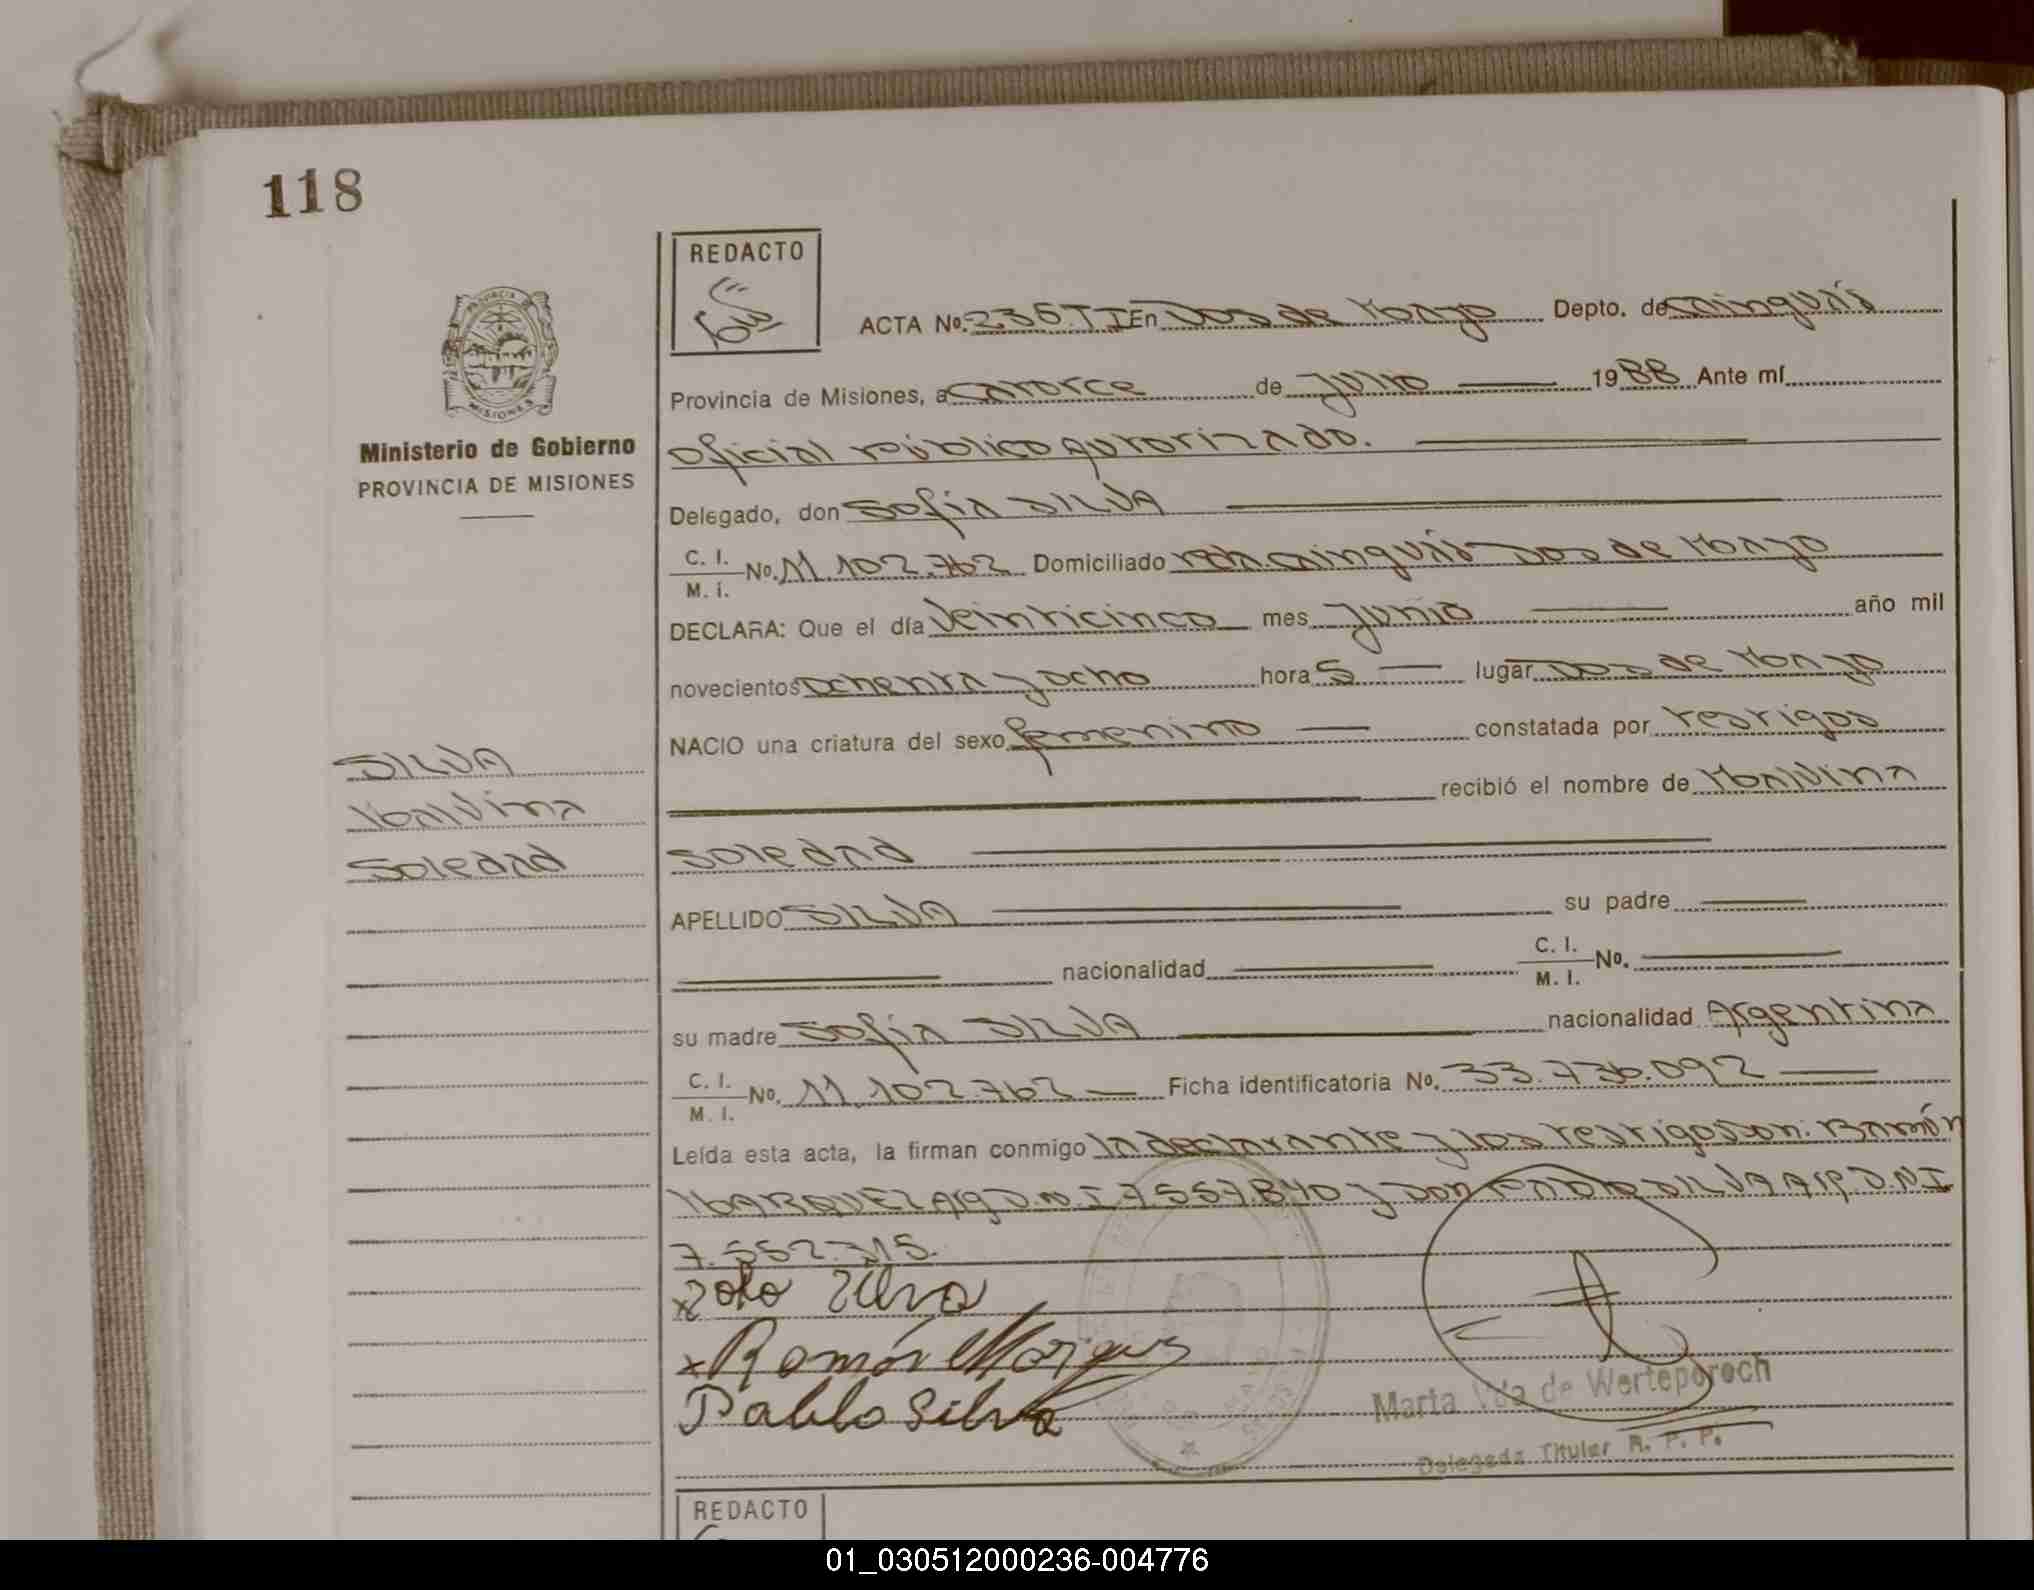 118
REDACTO
ACTA No. 235 T I En Dos de Mayo Depto. de Cainguás
Provincia de Misiones, a catorce de Julio 1988 Ante mí
Oficial público autorizado.
Ministerio de Gobierno
PROVINCIA DE MISIONES
Delegado, don Sofia SILVA
C. I. / M. I. No. 11.102.762 Domiciliado Cainguás Dos de Mayo
DECLARA: Que el día Veinticinco mes Junio año mil
novecientos ochenta y ocho hora 5 lugar Dos de Mayo
NACIO una criatura del sexo femenino constatada por testigos
SILVA
recibió el nombre de Malvina
Malvina
Soledad
Soledad
APELLIDO SILVA su padre
nacionalidad C. I. / M. I. No.
su madre Sofia SILVA nacionalidad Argentina
C. I. / M. I. No. 11.102.762 Ficha identificatoria No. 33.736.092
Leída esta acta, la firman conmigo la declarante y los testigos Don: Ramón
MARQUEZ Arg D.N.I 7.557.840 y Don Pablo SILVA Arg. D.N.I
7.552.315.
x Silva
x Ramón Marques
Pablo Silva
Marta Vda de Werteporoch
Delegada Titular R. P. P.
REDACTO
01_030512000236-004776